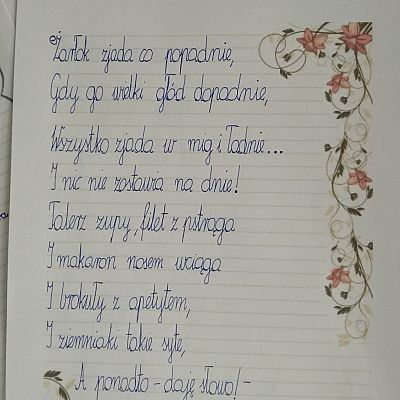 Żarłok zjada co popadnie,
Gdy go wielki głód dopadnie,
Wszystko zjada w mig i ładnie...
I nic nie zostawia na dnie!
Talerz zupy, filet z pstrąga
I makaron nosem wciąga
I brokuły z apetytem,
I ziemniaki takie syte,
A ponadto - daję słowo! -